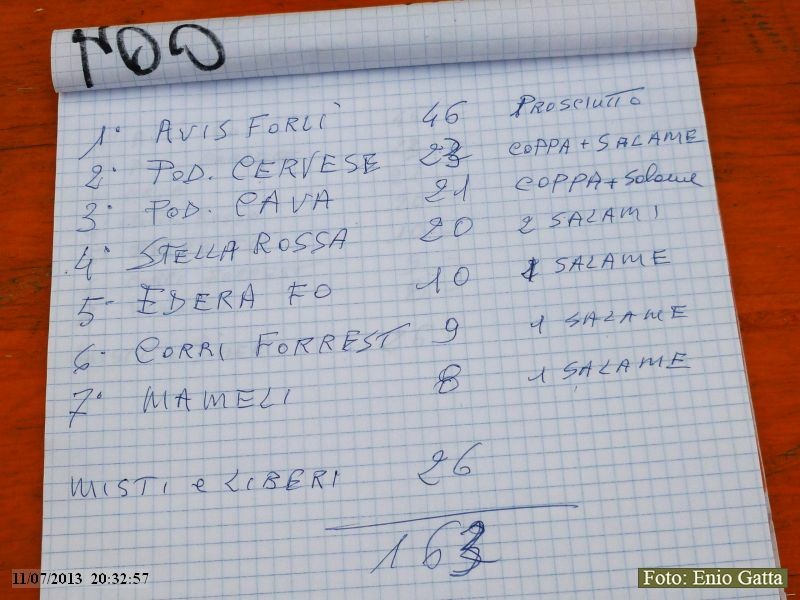 1° AVIS FORLÌ 46 PROSCIUTTO
2° POD. CERVESE 23 COPPA + SALAME
3° POD. CAVA 21 COPPA + Salame
4° STELLA ROSSA 20 2 SALAMI
5° EDERA FO 10 1 SALAME
6° CORRI FORREST 9 1 SALAME
7° MAMELI 8 1 SALAME
MISTI e LIBERI 26
163
11/07/2013 20:32:57
Foto: Enio Gatta